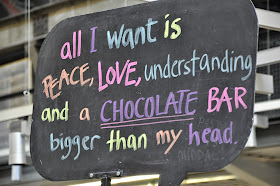 all I want is
PEACE, LOVE, understanding
and a CHOCOLATE BAR
bigger than my head.